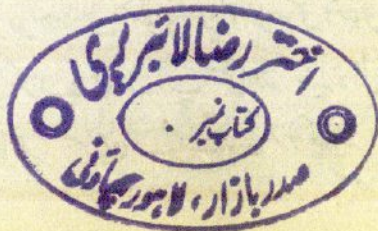 اختر رضا لائبریری
کتاب نمبر .
صدر بازار، لاہور چھاؤنی